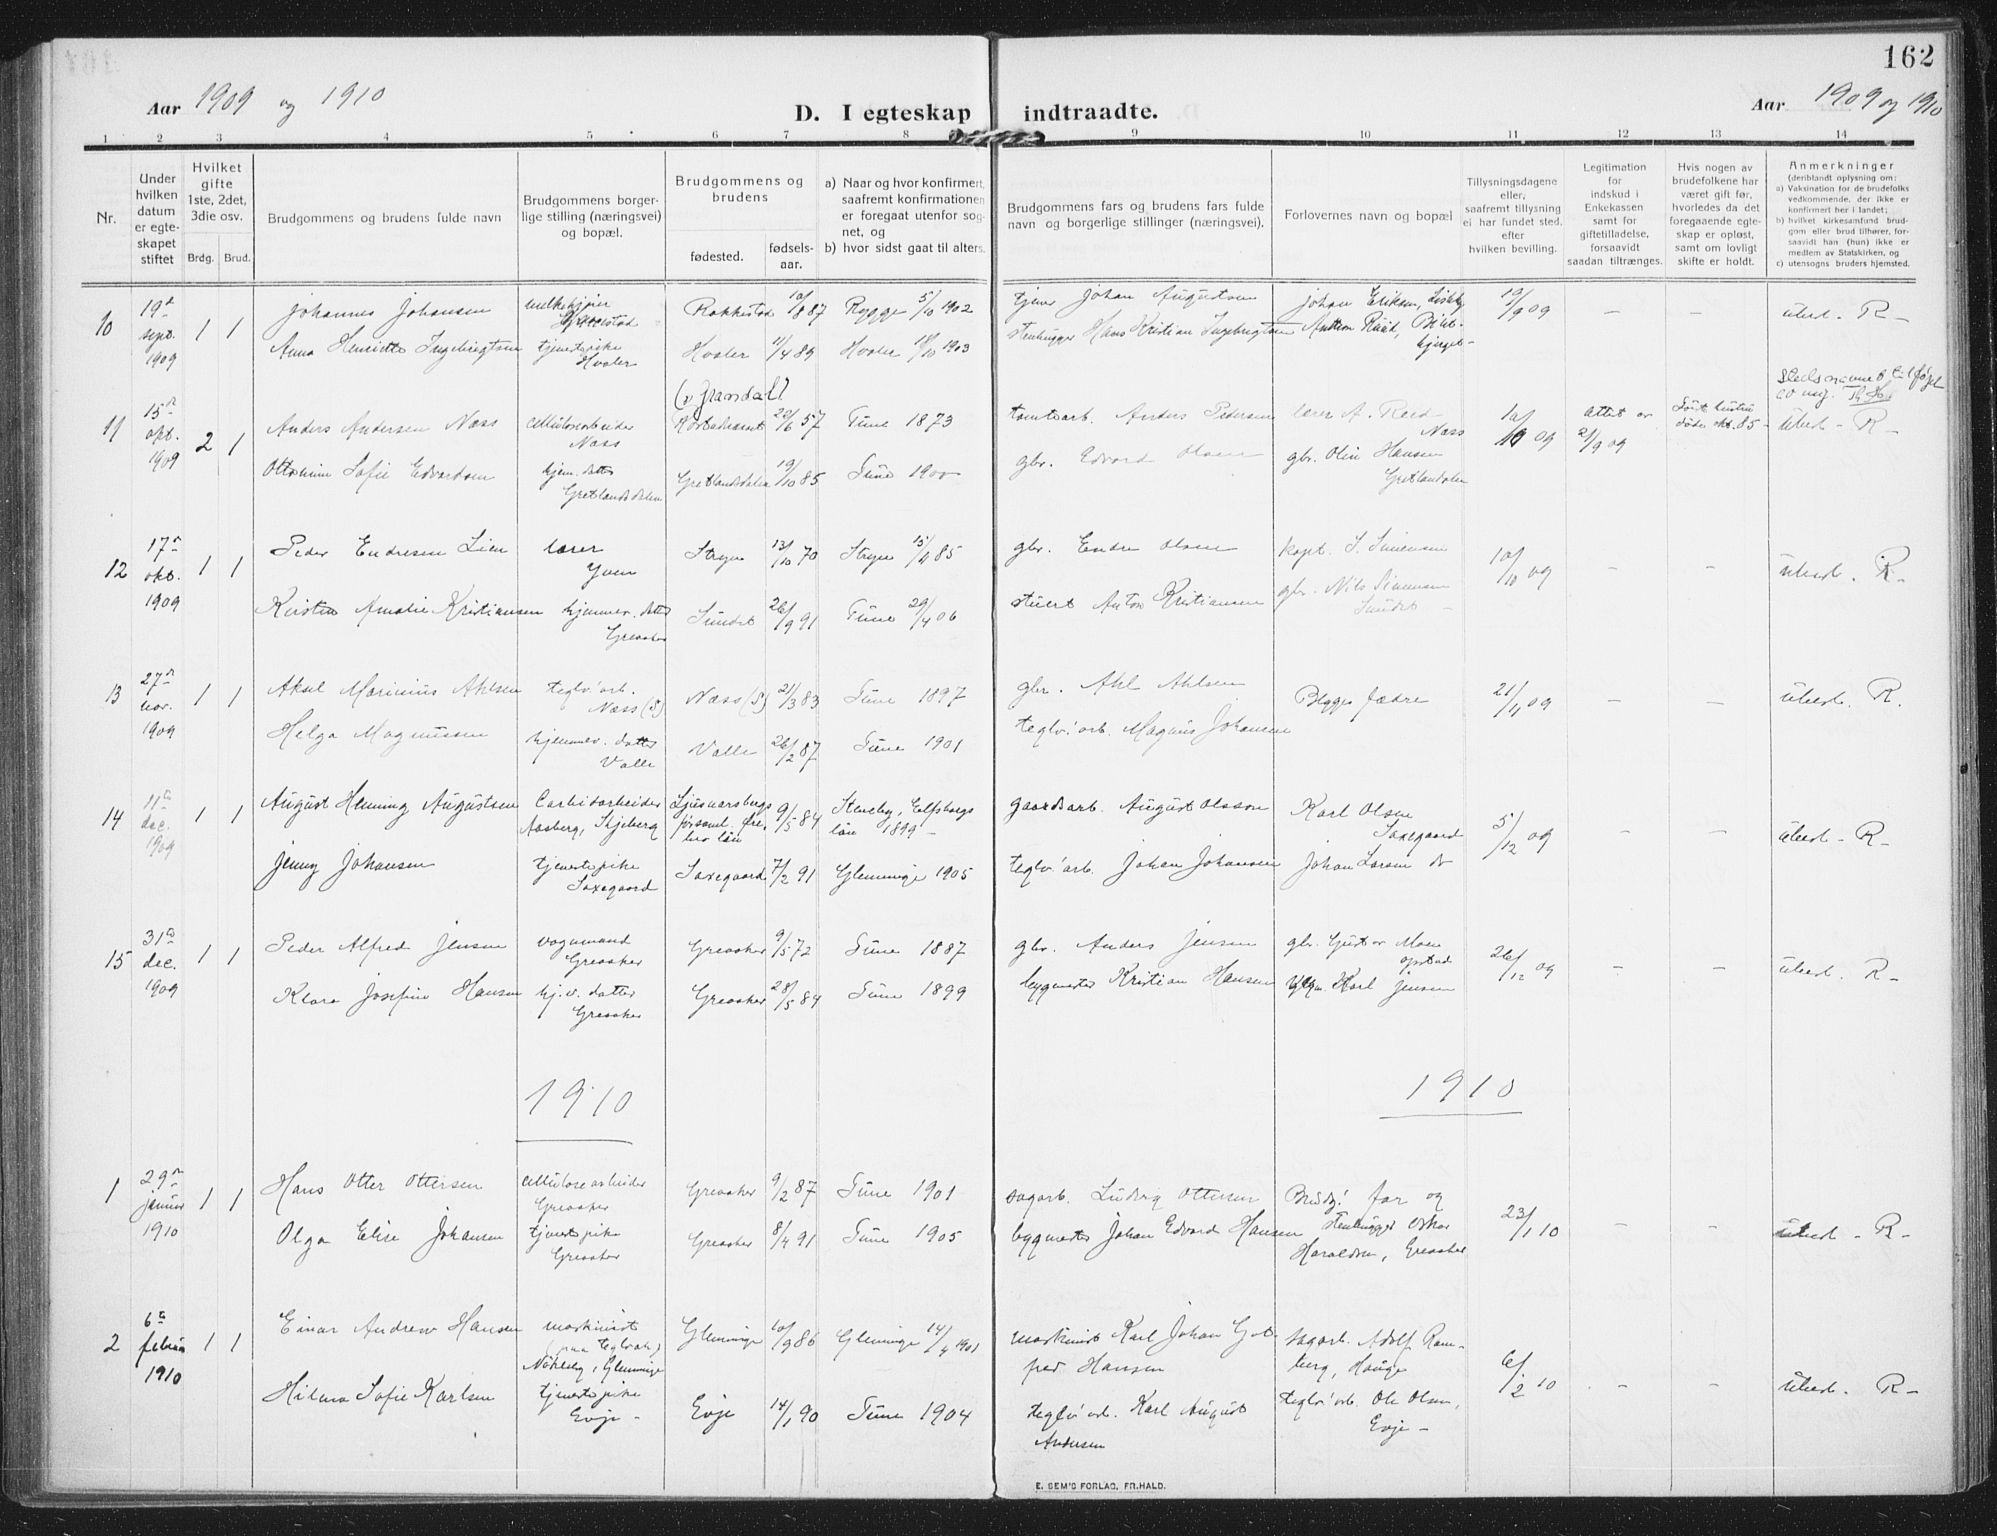 162
Aar 1909 og 1910
D. I egteskap indtraadte.
Aar 1909 og 1910
1 2 3 4 5 6 7 8 9 10 11 12 13 14
Nr.
Under hvilken datum er egteskapet stiftet
Hvilket gifte 1ste, 2det, 3die osv.
Brdg. Brud.
Brudgommens og brudens fulde navn
Brudgommens borgerlige stilling (næringsvei) og bopæl.
Brudgommens og brudens
fødested.
fødselsaar.
a) Naar og hvor konfirmert, saafremt konfirmationen er foregaat utenfor sognet, og
b) hvor sidst gaat til alters.
Brudgommens fars og brudens fars fulde navn og borgerlige stillinger (næringsvei).
Forlovernes navn og bopæl
Tillysningsdagene eller, saafremt tillysning ei har fundet sted, efter hvilken bevilling.
Legitimation for indskud i Enkekassen samt for giftetilladelse, forsaavidt saadan tiltrænges.
Hvis nogen av brudefolkene har været gift før, hvorledes da det foregaaende egteskap er opløst, samt om lovligt skifte er holdt.
Anmerkninger
(deriblandt oplysning om:
a) Vaksination for de brudefolks vedkommende, der ikke er konfirmert her i landet;
b) hvilket kirkesamfund brudgom eller brud tilhører, forsaavidt han (hun) ikke er medlem av Statskirken, og
c) utensogns bruders hjemsted.
10 19de sept. 1909 1 1
Johannes Johansen
Rakkestad 10/8 87 Rygge 5/10 1902
tjener Johan Augustsen
Johan Eriksen,
19/9 09 - - ubesl. R -
Anna Henriette Ingebrigtsen tjenestepike Hvaler
Hvaler 11/4 89 Hvaler 1903
stenhugger Hans Kristian Ingebrigtsen
11 15de okt. 1909 2 1
Anders Andersen Næss cellulosearbeider Næss
22/6 57 Tune 1873
tomtearb. Anders Pedersen
Næss
09 Attest av 2/9 09
ubesl - R -
Sofie Edvardsen hjem. datter Gretlandsdalen
Gretlandsdalen 19/10 85 Tune 1900
gbr. Edvard Olsen
gbr. Olin Hansen Gretlandsdalen
12 17de okt. 1909 1 1
Peder Endresen Lien lærer Yven
Stryn 13/10 70 Stryn 85
gbr. Endre Olsen
kapt. S. Simensen
10/10 09 - - ubesl. R -
Kirstine Amalie Kristiansen hjemmev. datter Greaaker
Sundet 26/9 91 Tune 29/4 06
stuert Anton Kristiansen
gbr. Nils Simensen Sundet -
13 27de nov. 1909 1 1
Aksel Marinius Ahlsen teglv.arb. Næss (S)
Næss (S) 21/3 83 Tune 1897
gbr. Ahl Ahlsen
Begges fædre
21/11 09 - - ubesl. R.
Helga Magnussen hjemmev. datter Valle
Valle 26/2 87 Tune 1901
teglv.arb. Magnus Johansen
14 11te dec. 1909 1 1
August Henning Augustsen Carbidarbeider Aasberg, Skjeberg
Ljusnarsbergs församl. Örebro län 9/5 84 Steneby, Elfsborgs län 1899 -
gaardsarb. August Olsson
Karl Olsen Saxegaard
5/12 09 - - ubesl - R -
Jenny Johansen tjenestepike Saxegaard
Saxegaard 7/2 91 Glemminge 1905
teglv.arb. Johan Johansen
Johan Larsen do
15 31te dec. 1909 1 1
Peder Alfred Jensen vognmand Greaaker
Greaaker 9/5 72 Tune 1887
gbr. Anders Jensen
gbr. Gustav Moen Opstad
26/12 09 - - ubesl. R -
Klara Josefine Hansen hj.v. datter Greaaker
Greaaker 28/5 84 Tune 1899
bygmester Kristian Hansen
Karl Jensen
1910 1910
1 29de januar 1910 1 1
Hans Otter Ottersen cellulosearbeider Greaaker
Greaaker 9/2 87 Tune 1901
sagarb. Ludvig Ottersen
Brudg! far og
23/1 10 - - ubesl - R -
Olga Elise Johansen tjenestepike Greaaker
Greaaker 8/4 91 Tune 1905
bygmester Johan Edvard Hansen
stenhugger Oskar Haraldsen, Greaaker
2 6te februar 1910 1 1
Einar Andrew Hansen maskinist (paa teglverk) Nøkleby, Glemminge
Glemminge 10/9 86 Glemminge 14/4 1901
maskinist Karl Johan Gotfred Hansen
sagarb. Adolf Ramberg, Hauge
6/2 10 - - ubesl. R -
Hilma Sofie Karlsen tjenestepike Evje -
Evje 14/1 90 Tune 1904
teglv.arb. Karl August Andersen
teglv.arb. Ole Olsen, Evje -
E. SEM'S FORLAG, FR.HALD.